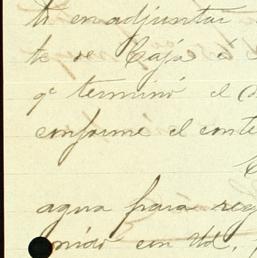 en adjuntar
te de Caja á
qe terminó el
conforme el conte
agua para reg
nido con Ud.